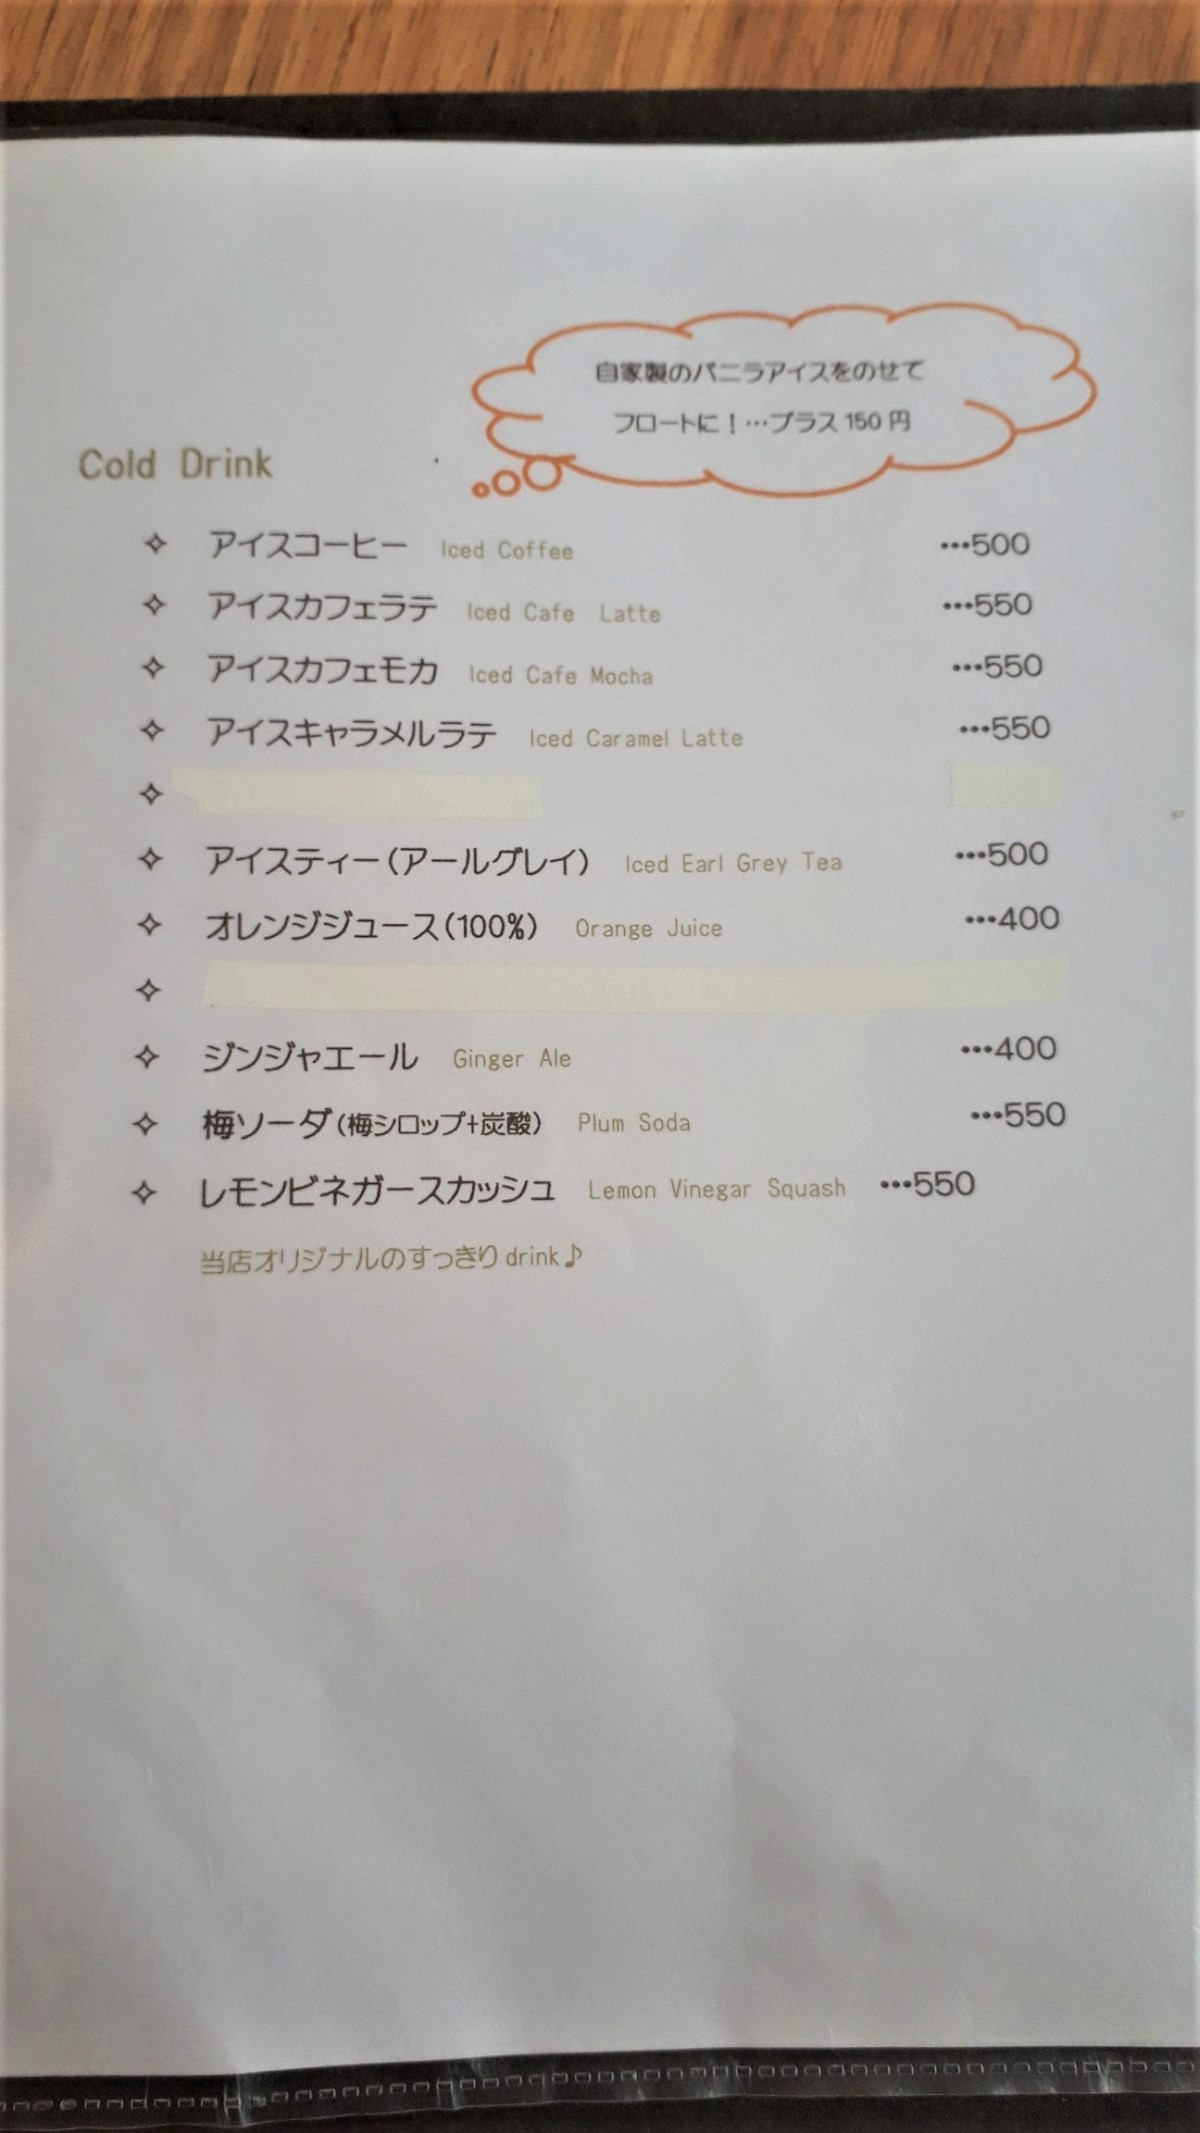 自家製のバニラアイスをのせて
フロートに！…プラス150円
Cold Drink
✧ アイスコーヒー Iced Coffee …500
✧ アイスカフェラテ Iced Cafe Latte …550
✧ アイスカフェモカ Iced Cafe Mocha …550
✧ アイスキャラメルラテ Iced Caramel Latte …550
✧
✧ アイスティー(アールグレイ) Iced Earl Grey Tea …500
✧ オレンジジュース(100%) Orange Juice …400
✧
✧ ジンジャエール Ginger Ale …400
✧ 梅ソーダ(梅シロップ+炭酸) Plum Soda …550
✧ レモンビネガースカッシュ Lemon Vinegar Squash …550
当店オリジナルのすっきりdrink♪